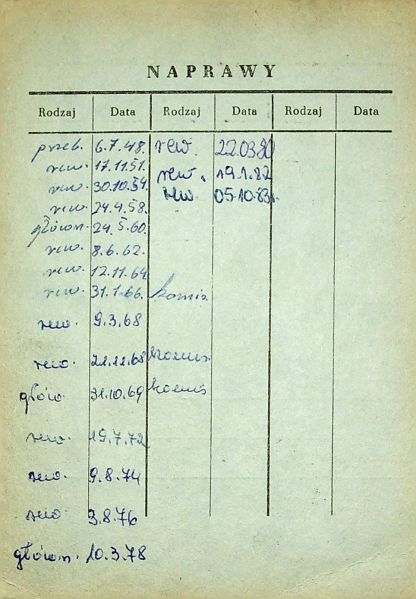 NAPRAWY
Rodzaj Data Rodzaj Data Rodzaj Data
przeb. 6.7.48. rew. 22.03.80
rew. 17.11.51. rew. 19.1.82
rew. 30.10.54. rew. 05.10.83.
rew. 24.4.58.
główn. 24.5.60.
rew. 8.6.62.
rew. 12.11.64.
rew. 31.1.66. komis
rew. 9.3.68
rew. .68 komis
główn. 31.10.69 komis
rew. 19.7.72
rew. 9.8.74
rew. 3.8.76
główn. 10.3.78